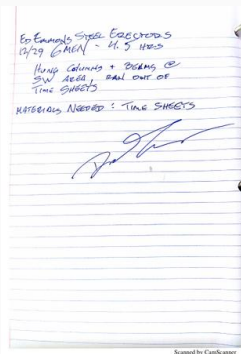 Ed Emmons Steel Erectors
12/29 6 Men - 4.5 Hrs
Hung Columns + Beams @
SW Area, Ran out of
Time Sheets
Materials Needed: Time Sheets
Scanned by CamScanner